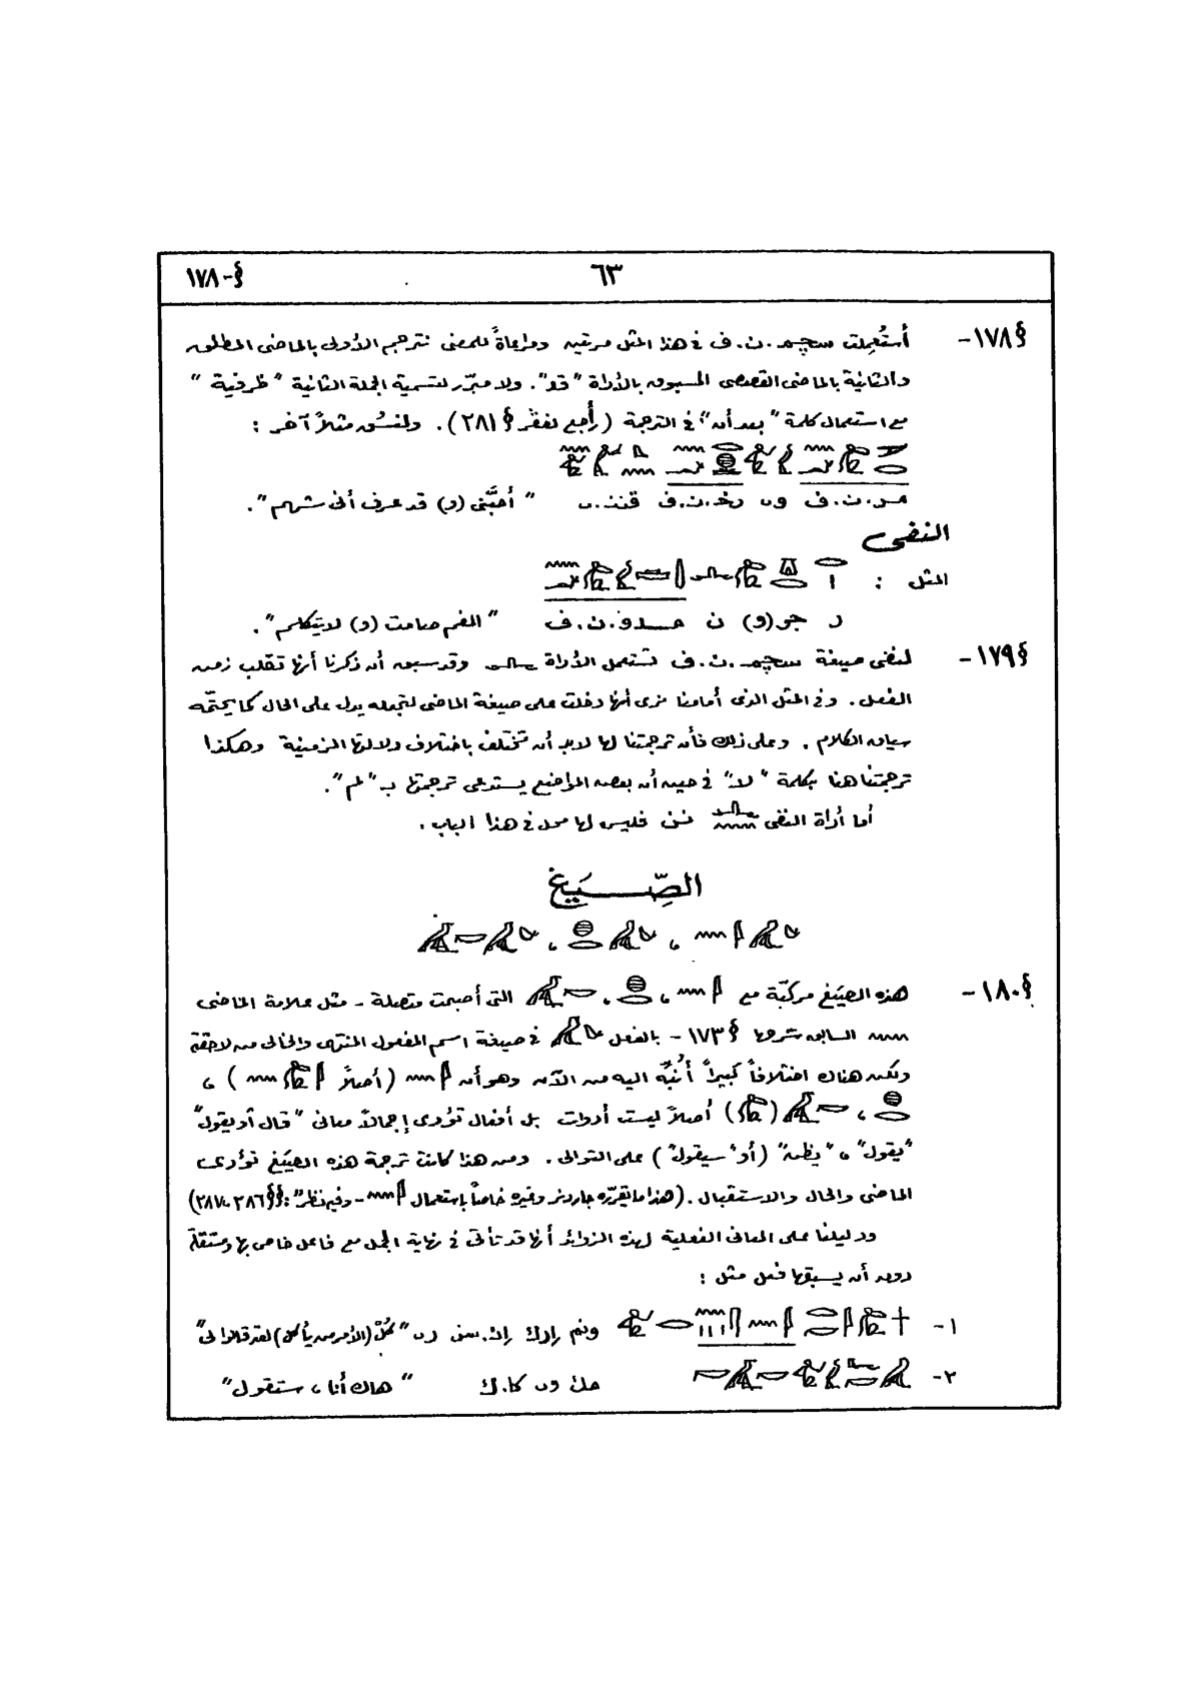 §-١٧٨
٦٣
§١٧٨- أستُعمِلت سچم.ن.ف فى هذا المثل مرتين ومراعاةً للمعنى نترجم الأولى بالماضى المطلق
والثانية بالماضى القصصى المسبوق بالأداة "قد". ولا مبرّر لتسمية الجملة الثانية "ظرفية"
مع استعمال كلمة "بعد أن" فى الترجمة (راجع لفقر §٢٨١). ولنسُق مثلاً آخر :
مر.ن.ف وى رخ.ن.ف قنن.ى "أحبَّنى (و) قد عرف أنى شهم".
النفى
المثل :
ر جر(و) ن مدو.ن.ف "الفم صامت (و) لا يتكلم".
§١٧٩- لنفى صيغة سچم.ن.ف تستعمل الأداة وقد سبق أن ذكرنا أنها تقلب زمن
الفعل. وفى المثل الذى أمامنا نرى أنها دخلت على صيغة الماضى لتجعله يدل على الحال كما يحتّمه
سياق الكلام. وعلى ذلك فأن ترجمتنا لها لابد أن تختلف باختلاف دلالتها الزمنية وهكذا
ترجمتنا هنا بكلمة "لا" فى حين أن بعض المواضع يستدعى ترجمتها بـ "لم".
أما أداة النفى نن فليس لها محل فى هذا الباب.
الصِّيَغ
§١٨٠- هذه الصيَغ مركبّة مع ، ، التى أصبحت متصلة - مثل علامة الماضى
السابق شرحها §١٧٣ - بالفعل فى صيغة اسم المفعول المنتهى والخالى من لاحقة
ولكن هناك اختلافاً كبيراً أُنبِّه اليه من الآن وهو أن (أصلاً ) ،
، ( ) أصلاً ليست أدوات بل أفعال تؤدى إجمالاً معانى "قال أو يقول"
"يقول" ، "يظن" (أو "سيقول") على التوالى. ومن هنا كانت ترجمة هذه الصيَغ تؤدى
الماضى والحال والاستقبال. (هذا ما يقرّره جاردنر وغيره خاصاً بإستعمال - وفيه نظر": §§٢٨٦، ٢٨٧)
ودليلنا على المعانى الفعلية لهذه الزوائد أنها قد تأتى فى نهاية الجمل مع فاعل خاص بها ومستقلة
دون أن يسبقها فعل مثل :
١- ونم إرك إن.سن رى "كُلْ (الأمر من يأكل) لقد قالوا لى"
٢- مك وى كا.ك "هاك أنا، ستقول"